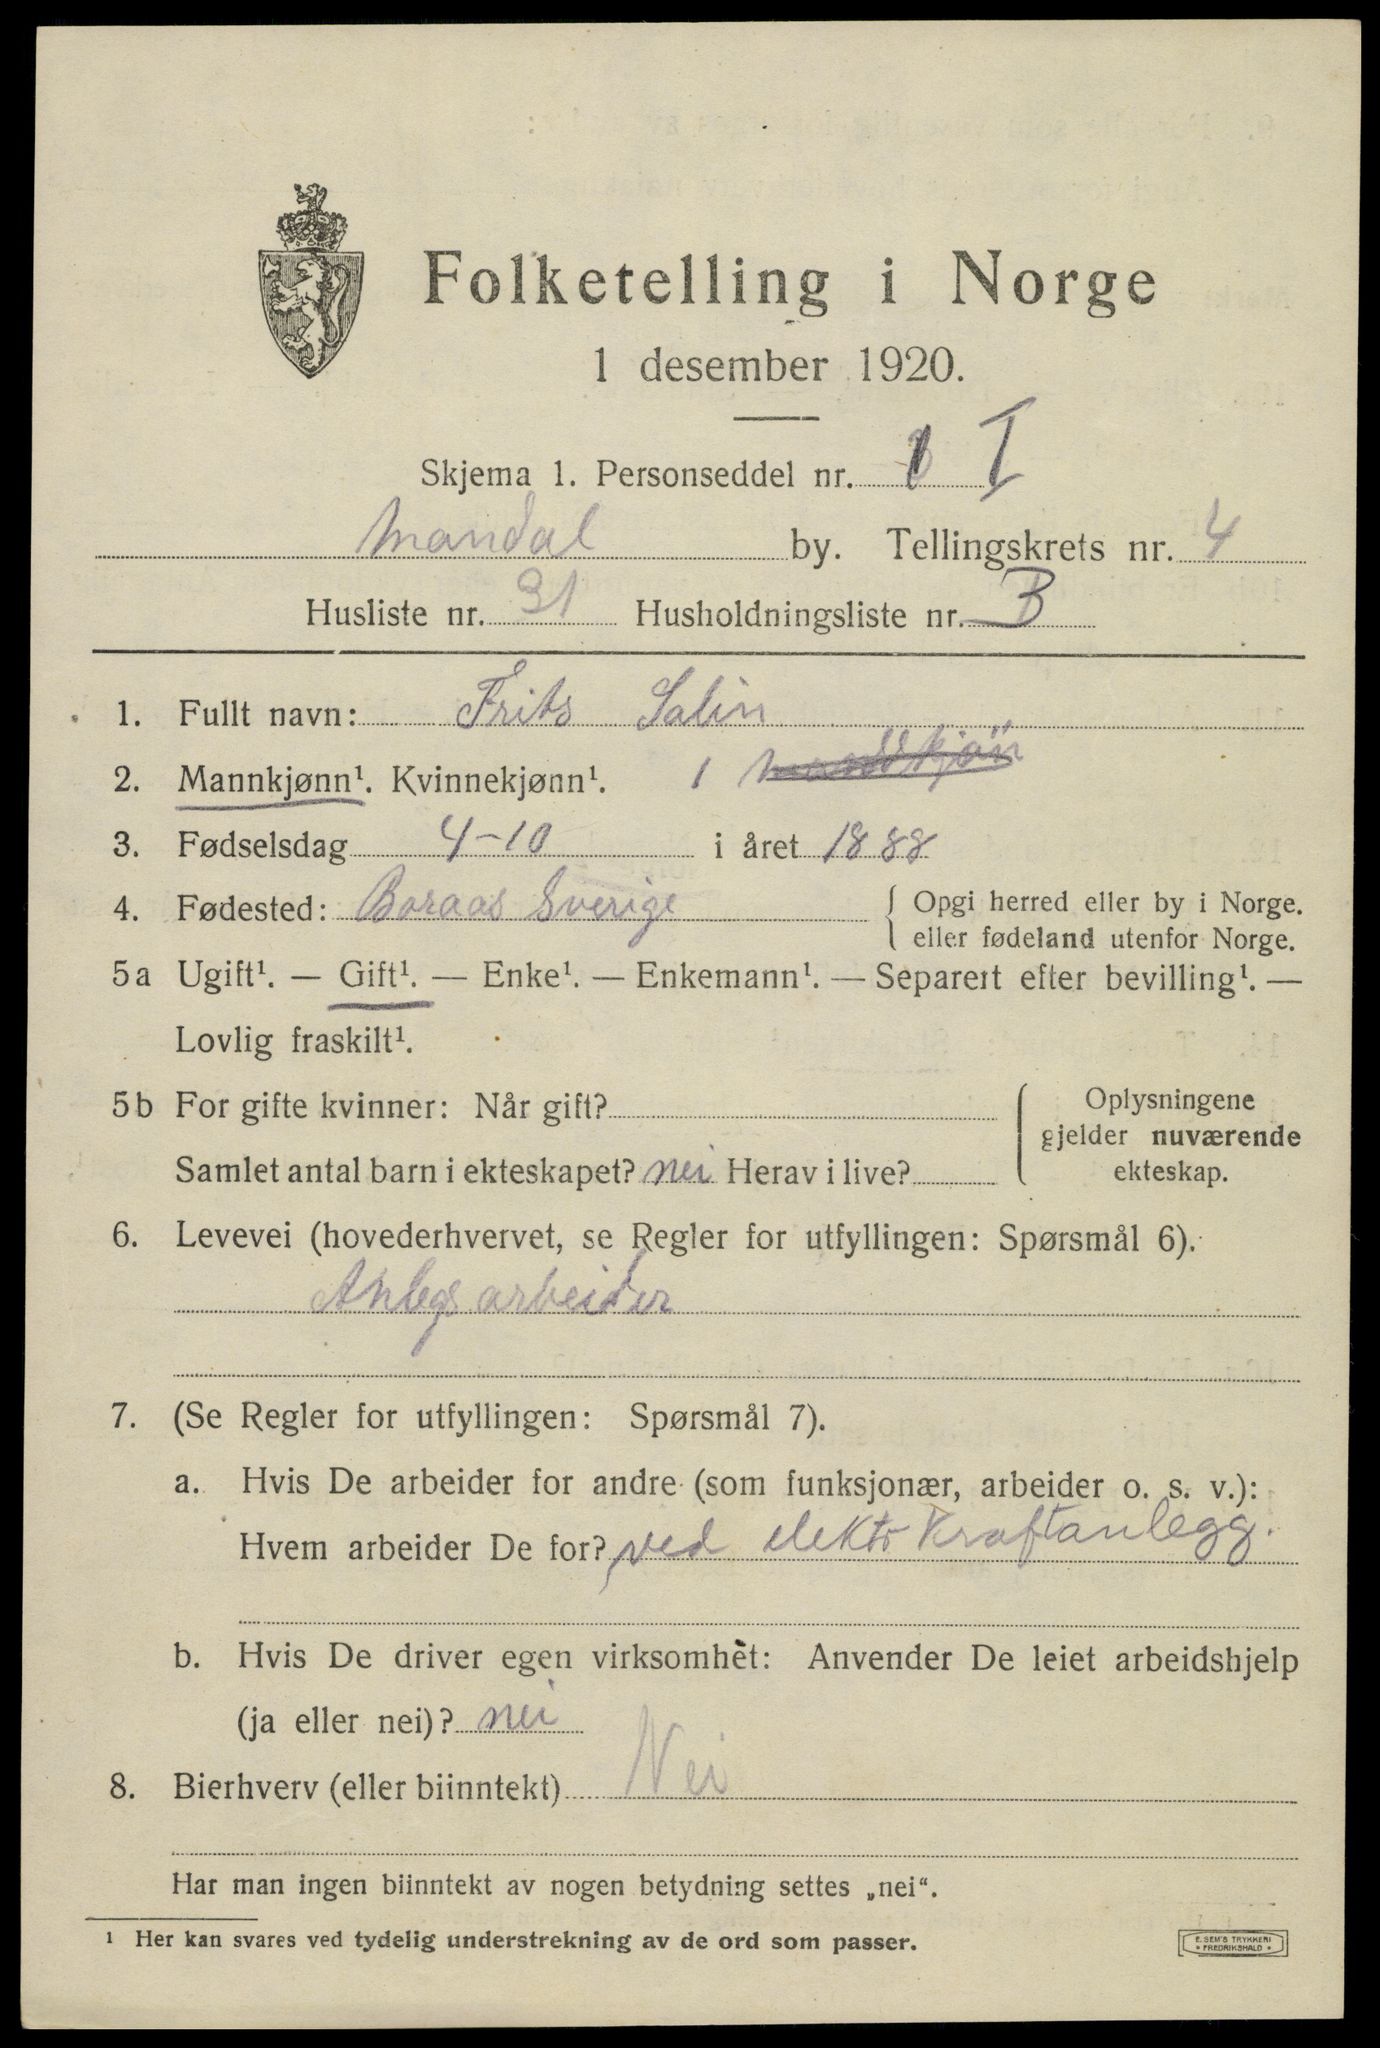 Folketelling i Norge
1 desember 1920.
Skjema 1. Personseddel nr. 1 I
Mandal by. Tellingskrets nr. 4
Husliste nr. 31 Husholdningsliste nr. B
1. Fullt navn: Frits Salin
2. Mannkjønn¹. Kvinnekjønn¹. 1 mandkjön
3. Fødselsdag 4-10 i året 1888
4. Fødested: Boraas Sverige { Opgi herred eller by i Norge.
eller fødeland utenfor Norge.
5a Ugift¹. — Gift¹. — Enke¹. — Enkemann¹. — Separert efter bevilling¹. —
Lovlig fraskilt¹.
5b For gifte kvinner: Når gift? { Oplysningene
gjelder nuværende
Samlet antal barn i ekteskapet? nei Herav i live? ekteskap.
6. Levevei (hovederhvervet, se Regler for utfyllingen: Spørsmål 6).
Anlegsarbeider
7. (Se Regler for utfyllingen: Spørsmål 7).
a. Hvis De arbeider for andre (som funksjonær, arbeider o. s. v.):
Hvem arbeider De for? ved elektr Kraftanlegg.
b. Hvis De driver egen virksomhet: Anvender De leiet arbeidshjelp
(ja eller nei)? nei
8. Bierhverv (eller biinntekt) Nei
Har man ingen biinntekt av nogen betydning settes „nei“.
¹ Her kan svares ved tydelig understrekning av de ord som passer.
E. SEM'S TRYKKERI
* FREDRIKSHALD *